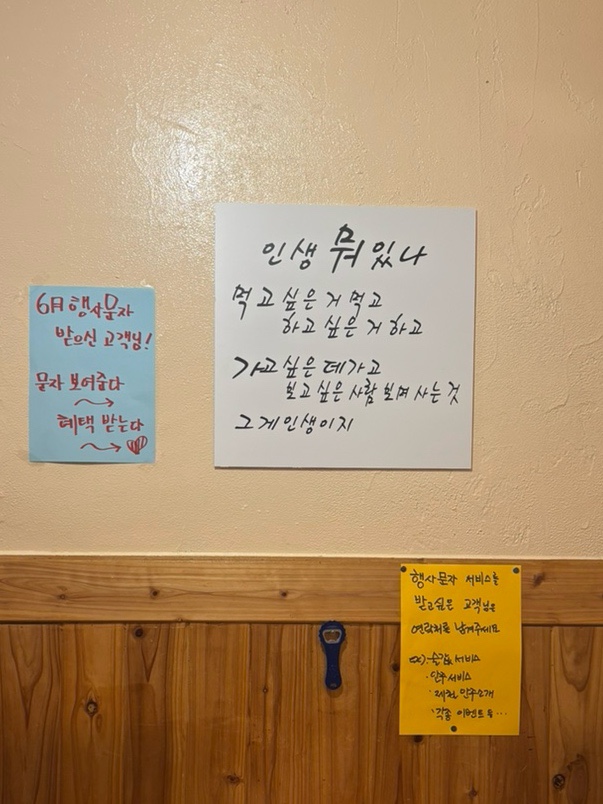 인생 뭐 있나
먹고 싶은 거 먹고
하고 싶은 거 하고
가고 싶은 데 가고
보고 싶은 사람 보며 사는 것
그게 인생이지
6月 행사문자
받으신 고객님!
문자 보여준다
혜택 받는다
행사문자 서비스를
받고싶은 고객님은
연락처를 남겨주세요
ex) ·술값 서비스
·안주 서비스
·제철 안주소개
·각종 이벤트 등...